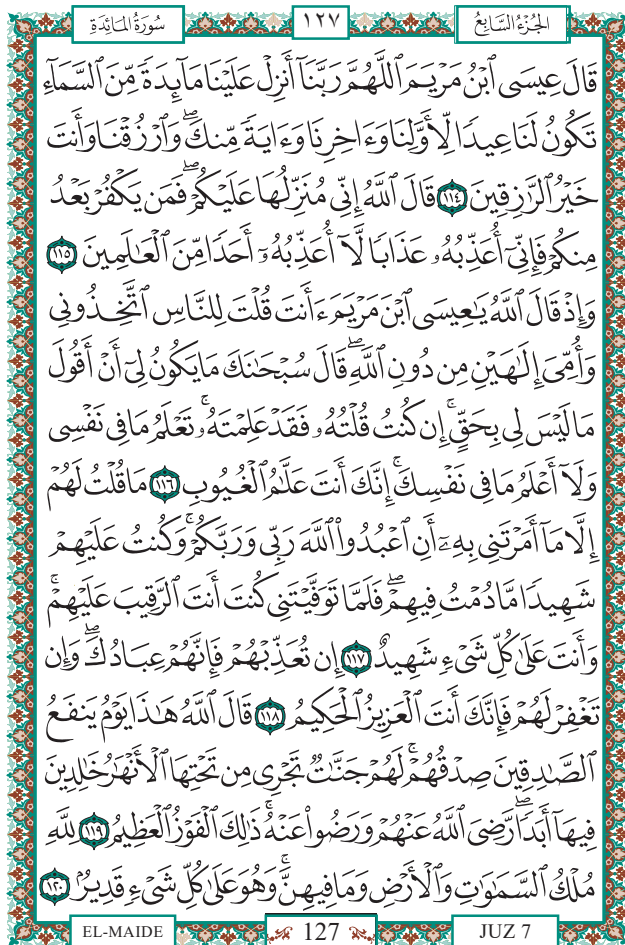 سُورَةُ المَائِدَةِ ١٢٧ الجُزْءُ السَّابِعُ
قَالَ عِيسَى ٱبْنُ مَرْيَمَ ٱللَّهُمَّ رَبَّنَآ أَنزِلْ عَلَيْنَا مَآئِدَةً مِّنَ ٱلسَّمَآءِ
تَكُونُ لَنَا عِيدًا لِّأَوَّلِنَا وَءَاخِرِنَا وَءَايَةً مِّنكَۖ وَٱرْزُقْنَا وَأَنتَ
خَيْرُ ٱلرَّٰزِقِينَ ١١٤ قَالَ ٱللَّهُ إِنِّي مُنَزِّلُهَا عَلَيْكُمْۖ فَمَن يَكْفُرْ بَعْدُ
مِنكُمْ فَإِنِّيٓ أُعَذِّبُهُۥ عَذَابًا لَّآ أُعَذِّبُهُۥٓ أَحَدًا مِّنَ ٱلْعَٰلَمِينَ ١١٥
وَإِذْ قَالَ ٱللَّهُ يَٰعِيسَى ٱبْنَ مَرْيَمَ ءَأَنتَ قُلْتَ لِلنَّاسِ ٱتَّخِذُونِي
وَأُمِّيَ إِلَٰهَيْنِ مِن دُونِ ٱللَّهِۖ قَالَ سُبْحَٰنَكَ مَا يَكُونُ لِيٓ أَنْ أَقُولَ
مَا لَيْسَ لِي بِحَقٍّۚ إِن كُنتُ قُلْتُهُۥ فَقَدْ عَلِمْتَهُۥۚ تَعْلَمُ مَا فِي نَفْسِي
وَلَآ أَعْلَمُ مَا فِي نَفْسِكَۚ إِنَّكَ أَنتَ عَلَّٰمُ ٱلْغُيُوبِ ١١٦ مَا قُلْتُ لَهُمْ
إِلَّا مَآ أَمَرْتَنِي بِهِۦٓ أَنِ ٱعْبُدُوا۟ ٱللَّهَ رَبِّي وَرَبَّكُمْۚ وَكُنتُ عَلَيْهِمْ
شَهِيدًا مَّا دُمْتُ فِيهِمْۖ فَلَمَّا تَوَفَّيْتَنِي كُنتَ أَنتَ ٱلرَّقِيبَ عَلَيْهِمْۚ
وَأَنتَ عَلَىٰ كُلِّ شَيْءٍ شَهِيدٌ ١١٧ إِن تُعَذِّبْهُمْ فَإِنَّهُمْ عِبَادُكَۖ وَإِن
تَغْفِرْ لَهُمْ فَإِنَّكَ أَنتَ ٱلْعَزِيزُ ٱلْحَكِيمُ ١١٨ قَالَ ٱللَّهُ هَٰذَا يَوْمُ يَنفَعُ
ٱلصَّٰدِقِينَ صِدْقُهُمْۚ لَهُمْ جَنَّٰتٌ تَجْرِي مِن تَحْتِهَا ٱلْأَنْهَٰرُ خَٰلِدِينَ
فِيهَآ أَبَدًاۖ رَّضِيَ ٱللَّهُ عَنْهُمْ وَرَضُوا۟ عَنْهُۚ ذَٰلِكَ ٱلْفَوْزُ ٱلْعَظِيمُ ١١٩ لِلَّهِ
مُلْكُ ٱلسَّمَٰوَٰتِ وَٱلْأَرْضِ وَمَا فِيهِنَّۚ وَهُوَ عَلَىٰ كُلِّ شَيْءٍ قَدِيرٌۢ ١٢٠
EL-MAIDE 127 JUZ 7